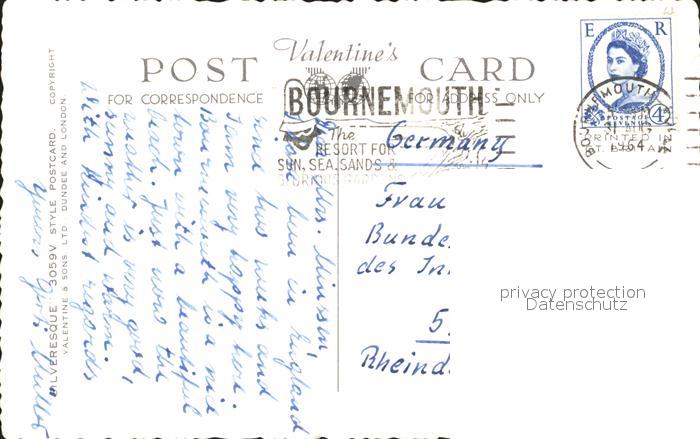 Valentine's
POST CARD
FOR CORRESPONDENCE
FOR ADDRESS ONLY
BOURNEMOUTH
The
RESORT FOR
SUN, SEA, SANDS &
E R
4D
POSTAGE
REVENUE
BOURNEMOUTH
1964
PRINTED IN
GT. BRITAIN
Germany
Frau
Bunde
des In
5.
Rheind
privacy protection
Datenschutz
"SILVERESQUE" 3059V STYLE POSTCARD. COPYRIGHT
VALENTINE & SONS LTD DUNDEE AND LONDON
been in England
two weeks and
I am very happy here.
Bournemouth is a nice
town with a beautiful
beach. Just now the
weather is very good,
sunny and warm.
With kindest regards
Yours,